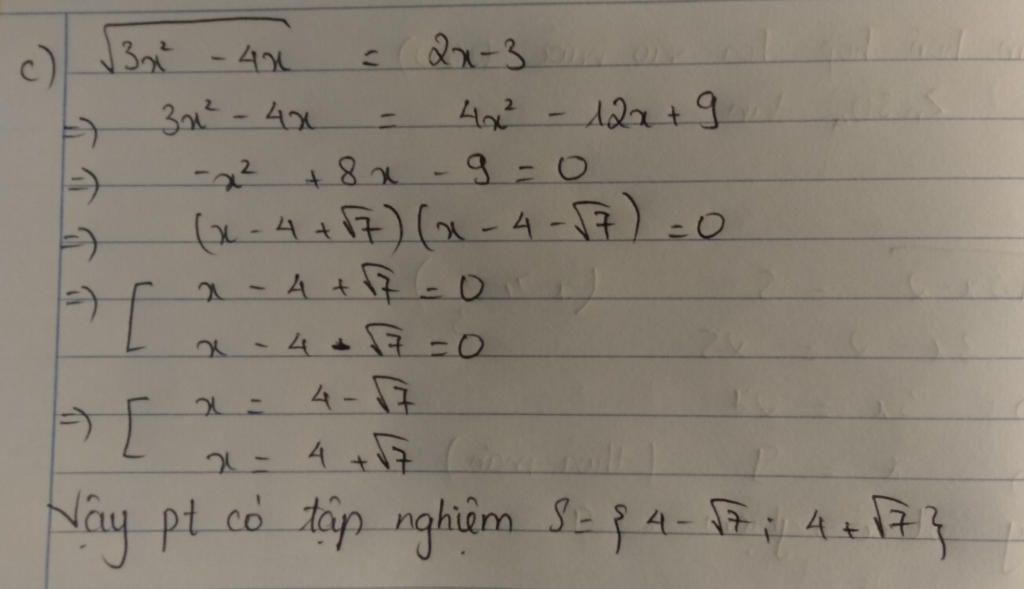 c) √(3x² - 4x) = 2x - 3
=> 3x² - 4x = 4x² - 12x + 9
=> -x² + 8x - 9 = 0
=> (x - 4 + √7)(x - 4 - √7) = 0
=> [ x - 4 + √7 = 0
x - 4 - √7 = 0
=> [ x = 4 - √7
x = 4 + √7
Vậy pt có tập nghiệm S = { 4 - √7 ; 4 + √7 }